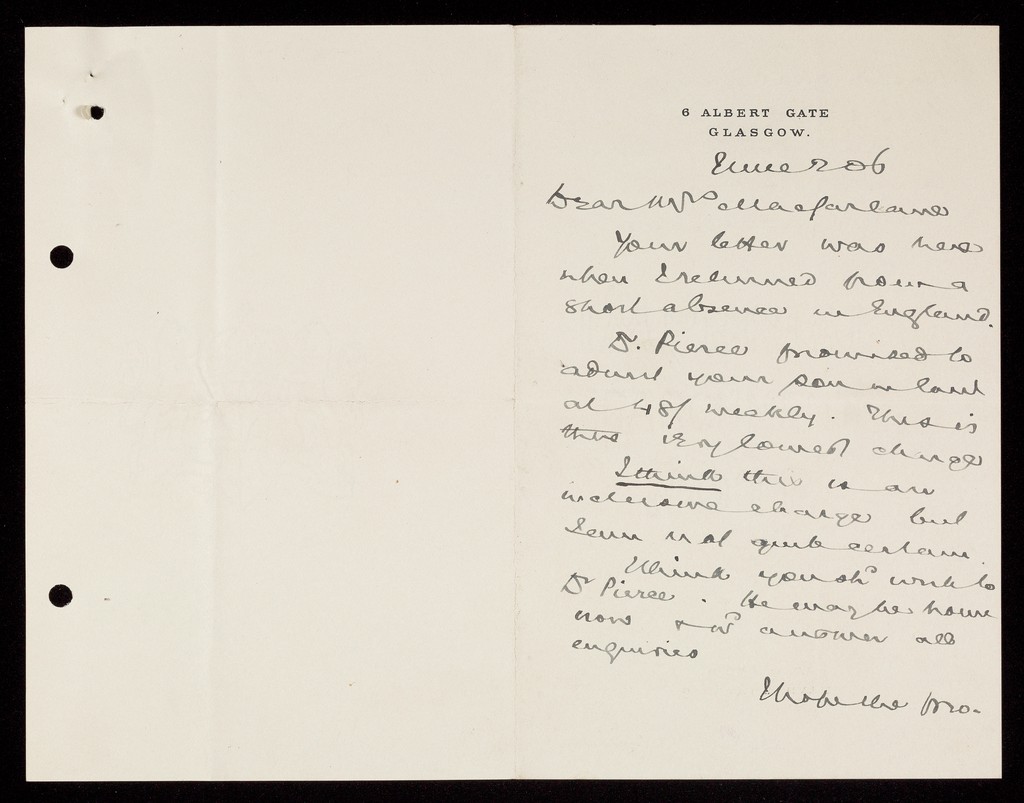 6 ALBERT GATE
GLASGOW.
June 2 06
Dear Mrs Macfarlane
Your letter was here
when I returned from a
short absence in England.
Dr. Pierce promised to
admit your son in law
at 48/ weekly. This is
this very lowest charge
I think this is an
inclusive charge but
I am not quite certain.
I think you shd write to
Dr Pierce. He may be home
now & wd answer all
enquiries
I hope the pro-